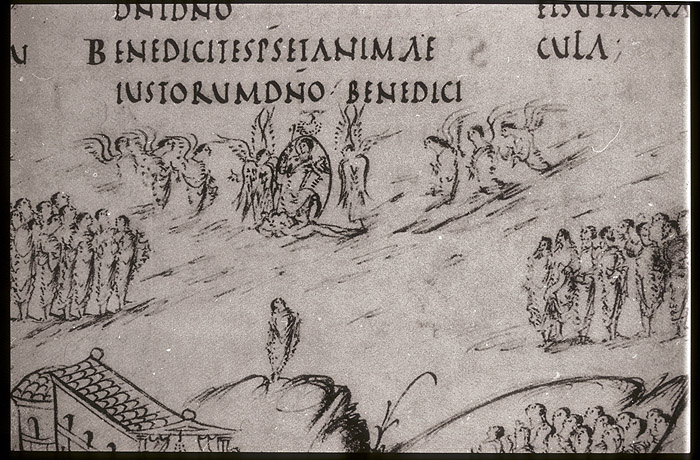 U
DNIDNO
BENEDICITESPSETANIMAE
IUSTORUMDNO· BENEDICI
ETSUPEREXA
CULA;